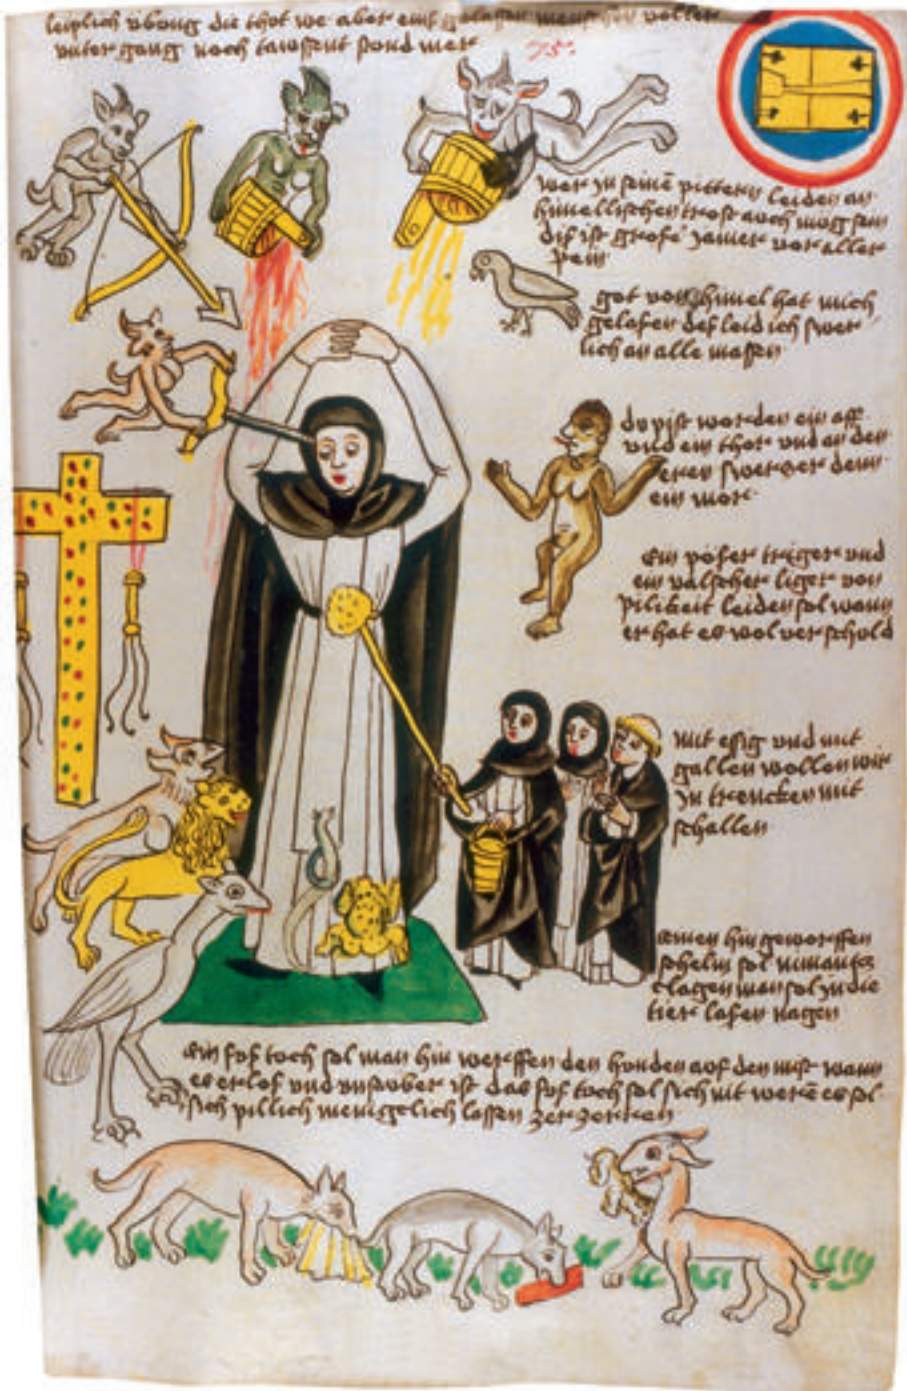 leiplich vbung die thot we aber eint gelassen menschen voller
vnter gang noch tawssent stund mer
75.
wer in seinē pittern leiden an
himellischen trost auch mogs sein
dis ist grose iamer vor aller
pein
got von himel hat mich
gelasen des leid ich swer
lich an alle massen
du pist worden ein aff
vnd ein thor vnd an den
eren swerczer denn
ein mor
Ein poser triger vnd
ein valscher liger von
pilikeit leiden sol wann
er hat es wol verschuld
Mit essig vnd mit
gallen wollen wir
in trencken mit
schallen
einen hin geworffen
schelm sol nimants
clagen man sol in die
tier lasen nagen
Ein fus toch sol man hin werffen den hunden auf den mist wann
es erlos vnd vnsauber ist das fus toch sol sich nit werē es sol
sich pillich menigelich lassen zerzerren